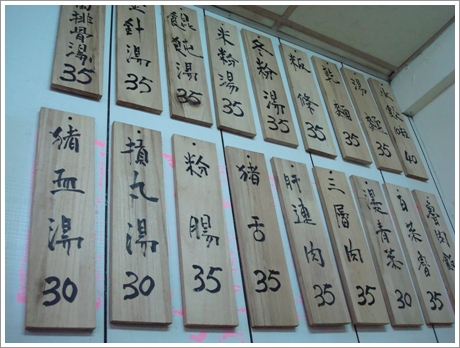 排骨湯 35
金針湯 35
餛飩湯 35
米粉湯 35
冬粉湯 35
粄條 35
乾麵 35
湯麵 35
40
豬血湯 30
摃丸湯 30
粉腸 35
豬舌 35
肝連肉 35
三層肉 35
燙青菜 35
白菜魯 30
魯肉飯 35